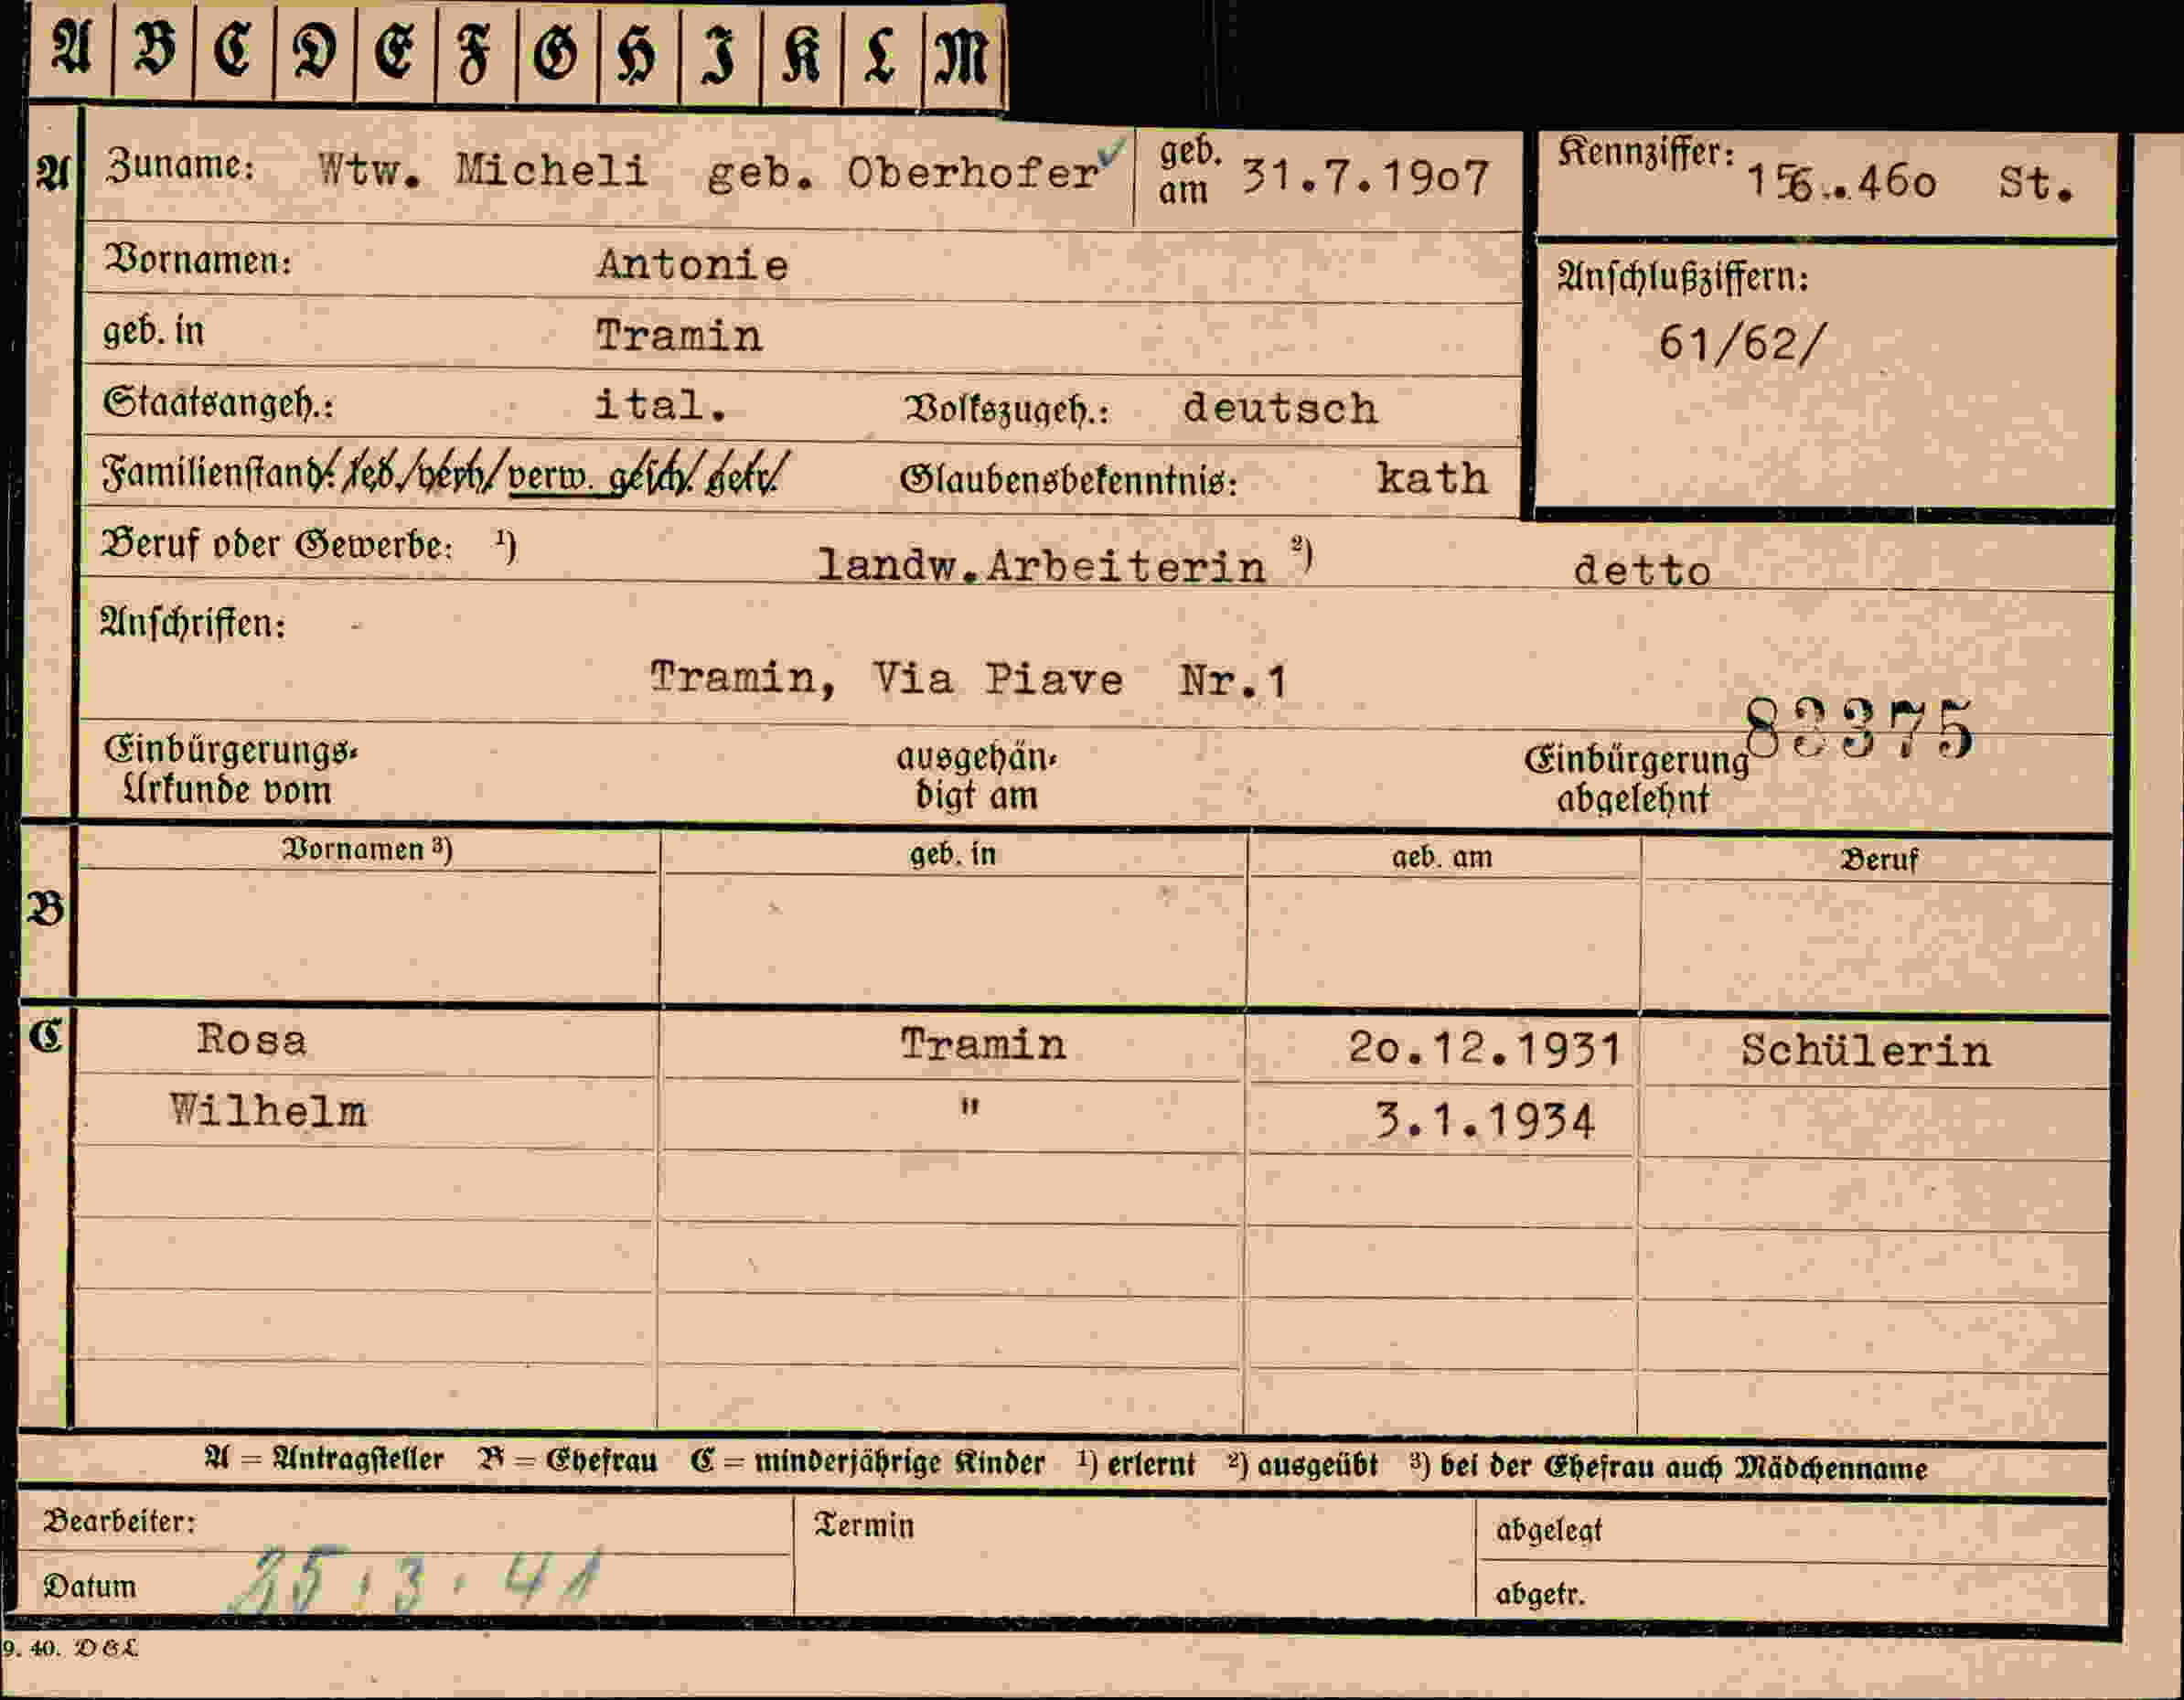 A B C D E F G H I K L M
A Zuname: Wtw. Micheli geb. Oberhofer geb. am 31.7.1907 Kennziffer: 156..460 St.
Vornamen: Antonie
Anschlußziffern:
geb. in Tramin 61/62/
Staatsangeh.: ital. Volkszugeh.: deutsch
Familienstand: led./verh/verw. gesch. getr. Glaubensbekenntnis: kath
Beruf oder Gewerbe: 1) landw.Arbeiterin 2) detto
Anschriften:
Tramin, Via Piave Nr.1
83375
Einbürgerungs- ausgehän- Einbürgerung
Urkunde vom digt am abgelehnt
Vornamen 3) geb. in geb. am Beruf
B
C Rosa Tramin 20.12.1931 Schülerin
Wilhelm " 3.1.1934
A = Antragsteller B = Ehefrau C = minderjährige Kinder 1) erlernt 2) ausgeübt 3) bei der Ehefrau auch Mädchenname
Bearbeiter: Termin abgelegt
Datum 25.3.41 abgetr.
9. 40. DGL